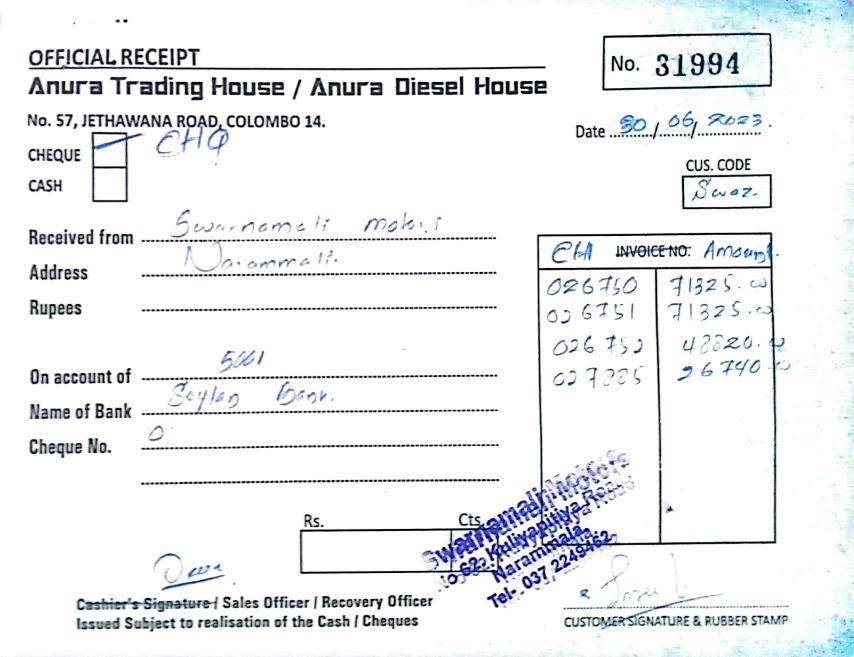 OFFICIAL RECEIPT
No. 31994
Anura Trading House / Anura Diesel House
No. 57, JETHAWANA ROAD, COLOMBO 14.
Date 30/06/2023.
CHEQUE CHQ
CASH
CUS. CODE
Swaz
Received from Swarnamali Motors
Address Narammala.
Rupees
CH INVOICE NO. Amount.
026750 71325.00
026751 71325.00
026752 48820.00
027885 26740.00
On account of 5001
Name of Bank Seylan Bank.
Cheque No.
Rs. Cts.
Swarnamali Motors
No 62, Kuliyapitiya Road
Narammala.
Tel- 037 2249462
Cashier's Signature / Sales Officer / Recovery Officer
Issued Subject to realisation of the Cash / Cheques
CUSTOMER SIGNATURE & RUBBER STAMP